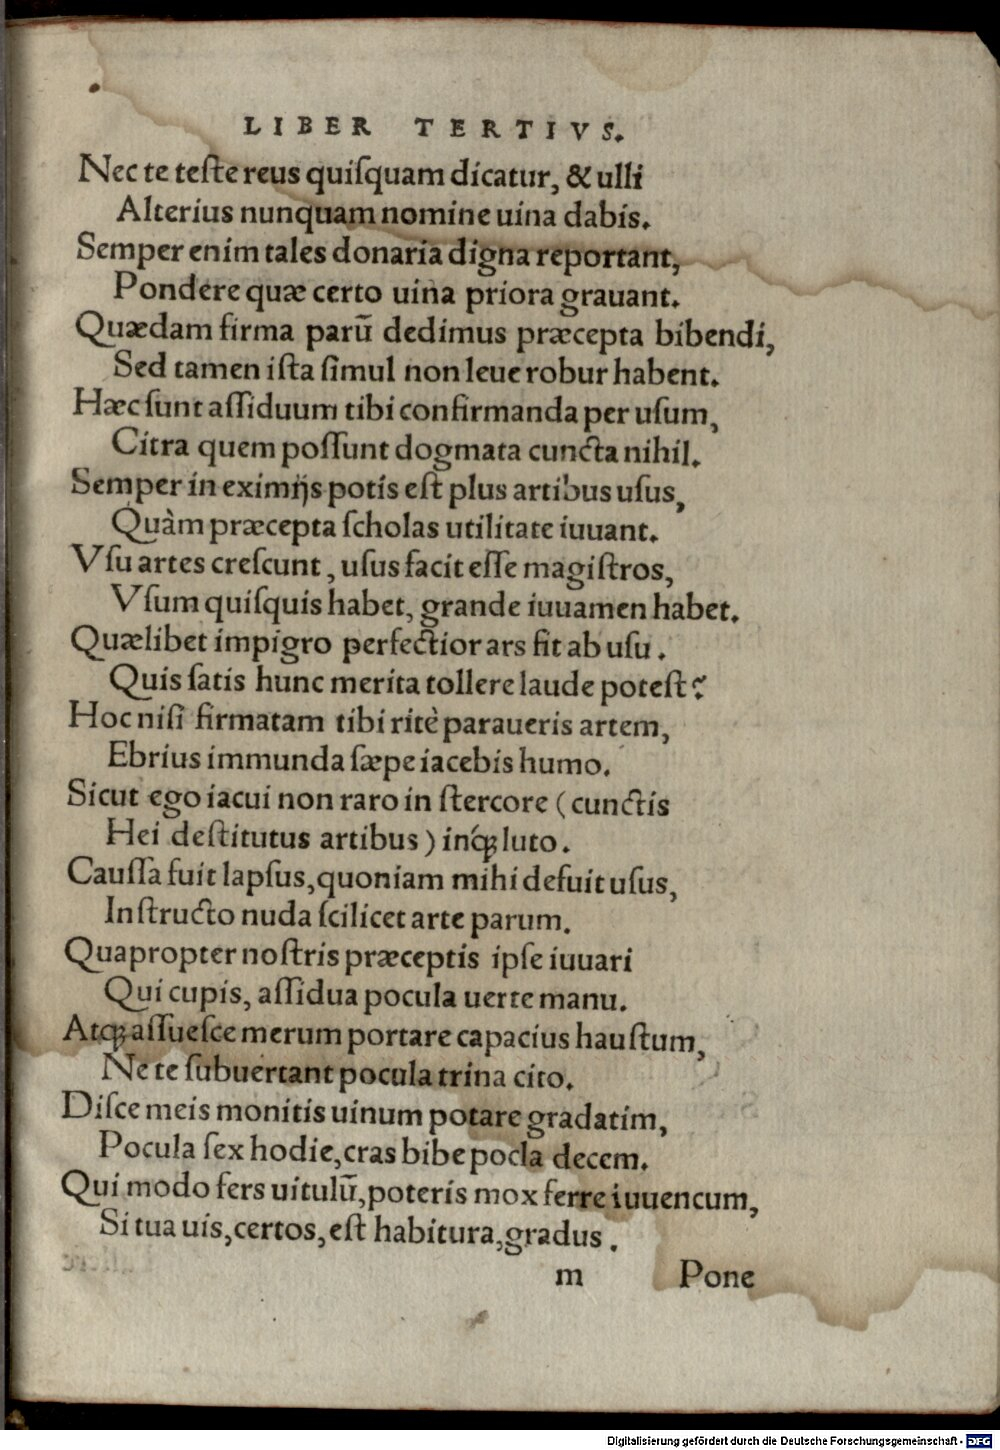 LIBER TERTIVS.
Nec te teſte reus quiſquam dicatur, & ulli
Alterius nunquam nomine uina dabis.
Semper enim tales donaria digna reportant,
Pondere quæ certo uina priora grauant.
Quædam firma parū dedimus præcepta bibendi,
Sed tamen iſta ſimul non leue robur habent.
Hæc ſunt aſſiduum tibi confirmanda per uſum,
Citra quem poſſunt dogmata cuncta nihil.
Semper in eximijs potis eſt plus artibus uſus,
Quàm præcepta ſcholas utilitate iuuant.
Vſu artes creſcunt, uſus facit eſſe magiſtros,
Vſum quiſquis habet, grande iuuamen habet.
Quælibet impigro perfectior ars fit ab uſu.
Quis ſatis hunc merita tollere laude poteſt?
Hoc niſi firmatam tibi ritè paraueris artem,
Ebrius immunda ſæpe iacebis humo.
Sicut ego iacui non raro in ſtercore (cunctis
Hei deſtitutus artibus) inq́ꝫ luto.
Cauſſa fuit lapſus, quoniam mihi defuit uſus,
Inſtructo nuda ſcilicet arte parum.
Quapropter noſtris præceptis ipſe iuuari
Qui cupis, aſſidua pocula uerte manu.
Atqꝫ aſſueſce merum portare capacius hauſtum,
Ne te ſubuertant pocula trina cito.
Diſce meis monitis uinum potare gradatim,
Pocula ſex hodie, cras bibe pocla decem.
Qui modo fers uitulū, poteris mox ferre iuuencum,
Si tua uis, certos, eſt habitura, gradus.
m Pone
Digitalisierung gefördert durch die Deutsche Forschungsgemeinschaft - DFG